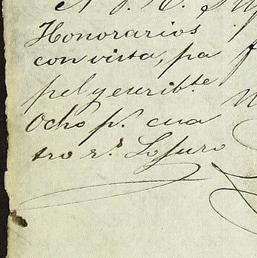 Honorarios
con vista, pa
pel y escribte
Ocho ps. cua
tro rs. Lo juro